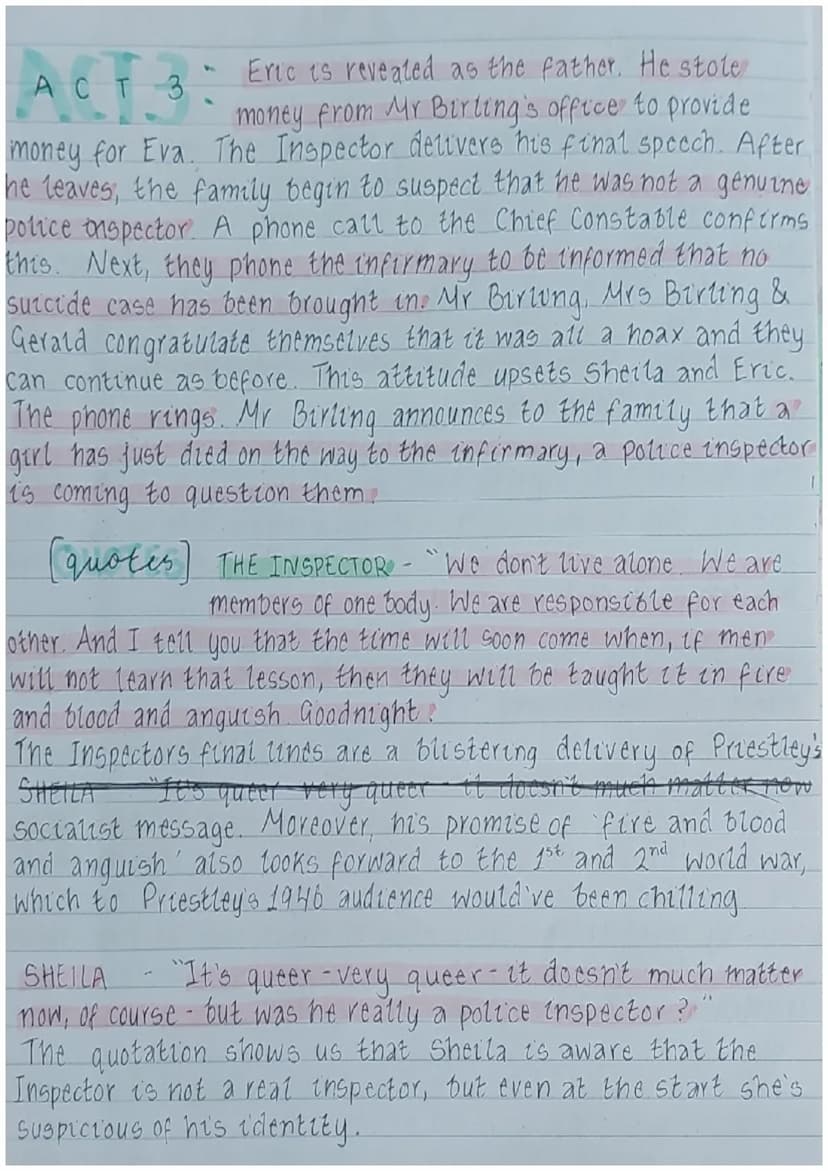 ACT 3: Eric is revealed as the father. He stole
money from Mr Birling's office to provide
money for Eva. The Inspector delivers his final speech. After
he leaves, the family begin to suspect that he was not a genuine
police inspector. A phone call to the Chief Constable confirms
this. Next, they phone the infirmary to be informed that no
suicide case has been brought in. Mr Birling, Mrs Birling &
Gerald congratulate themselves that it was all a hoax and they
can continue as before. This attitude upsets Sheila and Eric.
The phone rings. Mr Birling announces to the family that a
girl has just died on the way to the infirmary, a police inspector
is coming to question them.
[quotes] THE INSPECTOR - "We don't live alone. We are
members of one body. We are responsible for each
other. And I tell you that the time will soon come when, if men
will not learn that lesson, then they will be taught it in fire
and blood and anguish. Goodnight.
The Inspectors final lines are a blistering delivery of Priestley's
SHEILA "It's queer very queer - it doesn't much matter now
socialist message. Moreover, his promise of 'fire and blood
and anguish' also looks forward to the 1st and 2nd world war,
which to Priestley's 1946 audience would've been chilling
SHEILA - "It's queer - very queer - it doesn't much matter
now, of course - but was he really a police inspector?"
The quotation shows us that Sheila is aware that the
Inspector is not a real inspector, but even at the start she's
suspicious of his identity.